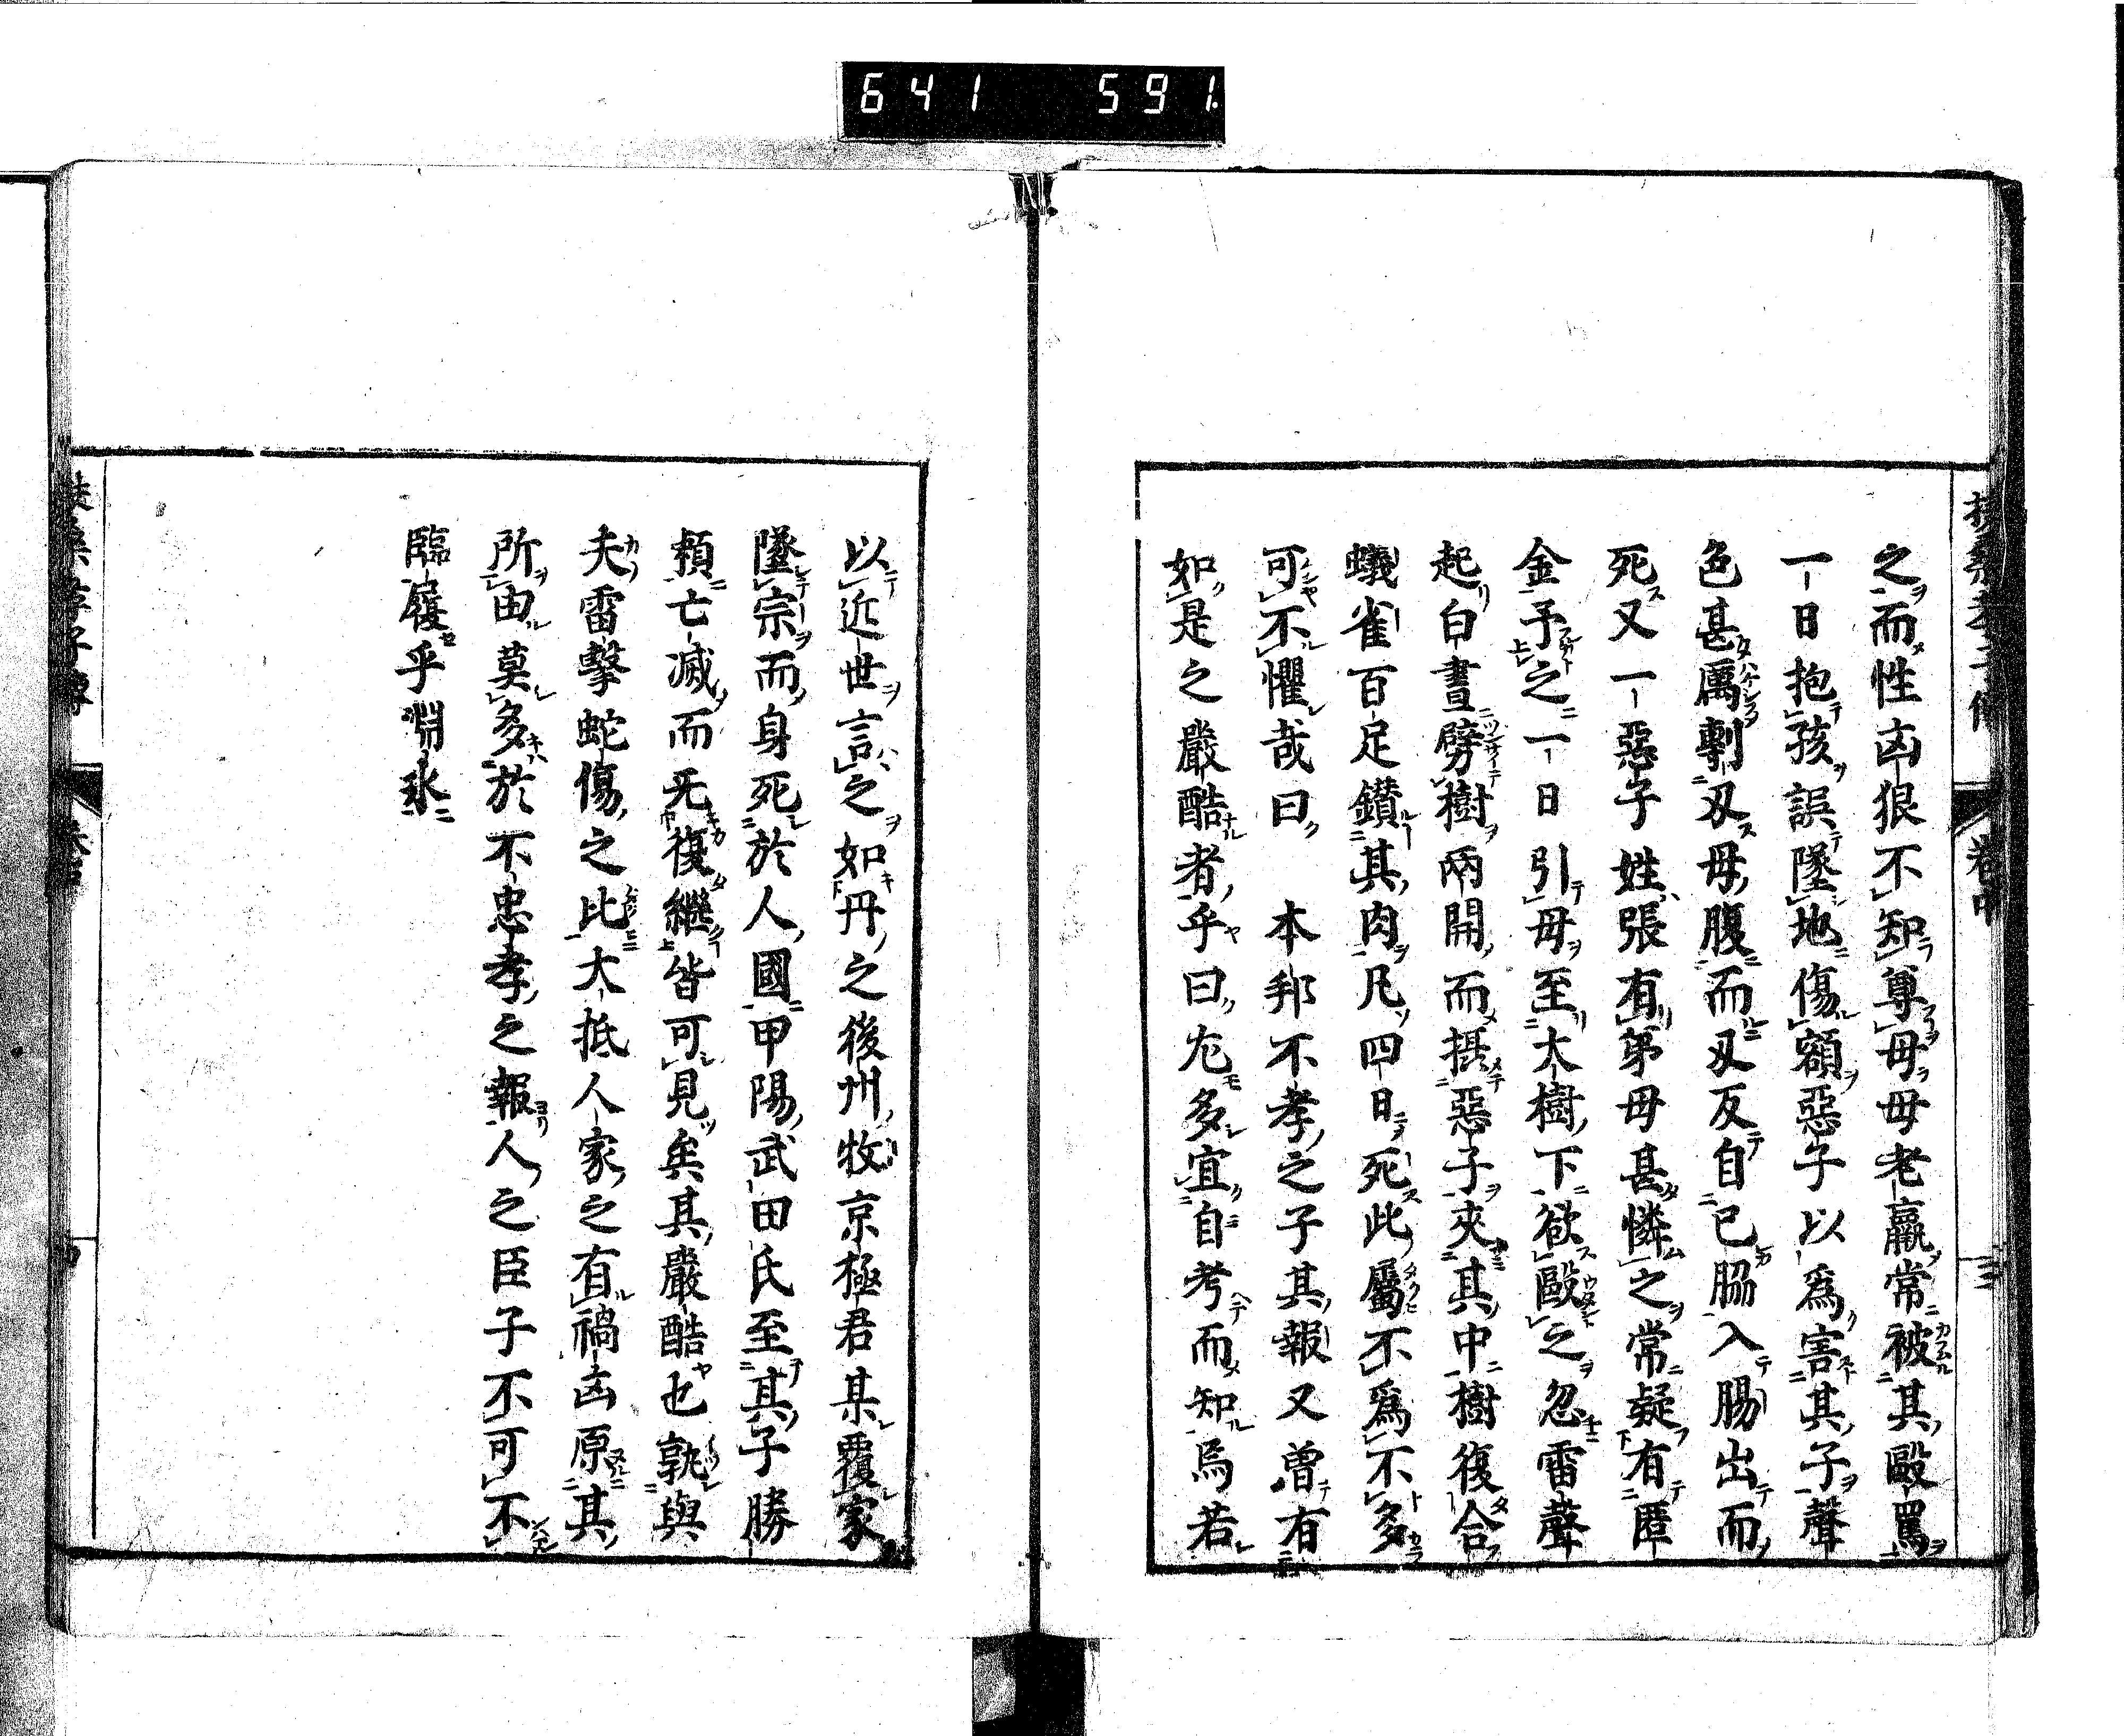 641 591
卷中
三
之而性凶狠不知尊母母老羸常被其毆罵
一日抱孩誤墜地傷額惡子以爲害其子聲
色甚厲剚刄母腹而刄反自已脇入腸出而
死又一惡子姓張有弟母甚憐之常疑有匿
金予之一日引母至大樹下欲毆之忽雷聲
起白晝劈樹兩開而攝惡子夾其中樹復合
蟻雀百足鑚其肉凡四日死此屬不爲不多
可不懼哉曰　本邦不孝之子其報又曽有
如是之嚴酷者乎曰尤多宜自考而知焉若
以近世言之如丹之後州牧京極君某覆家
墜宗而身死於人國甲陽武田氏至其子勝
頼亡滅而无復繼皆可見矣其嚴酷也孰與
夫雷擊蛇傷之比大抵人家之有禍凶原其
所由莫多於不忠孝之報人之臣子不可不
臨履乎淵氷